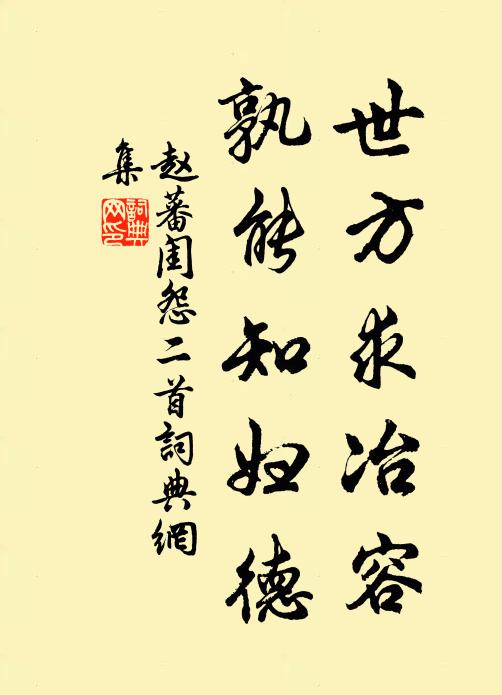 世方求冶容
孰能知妇德
赵蕃闺怨二首詞典網
集
詞典網印